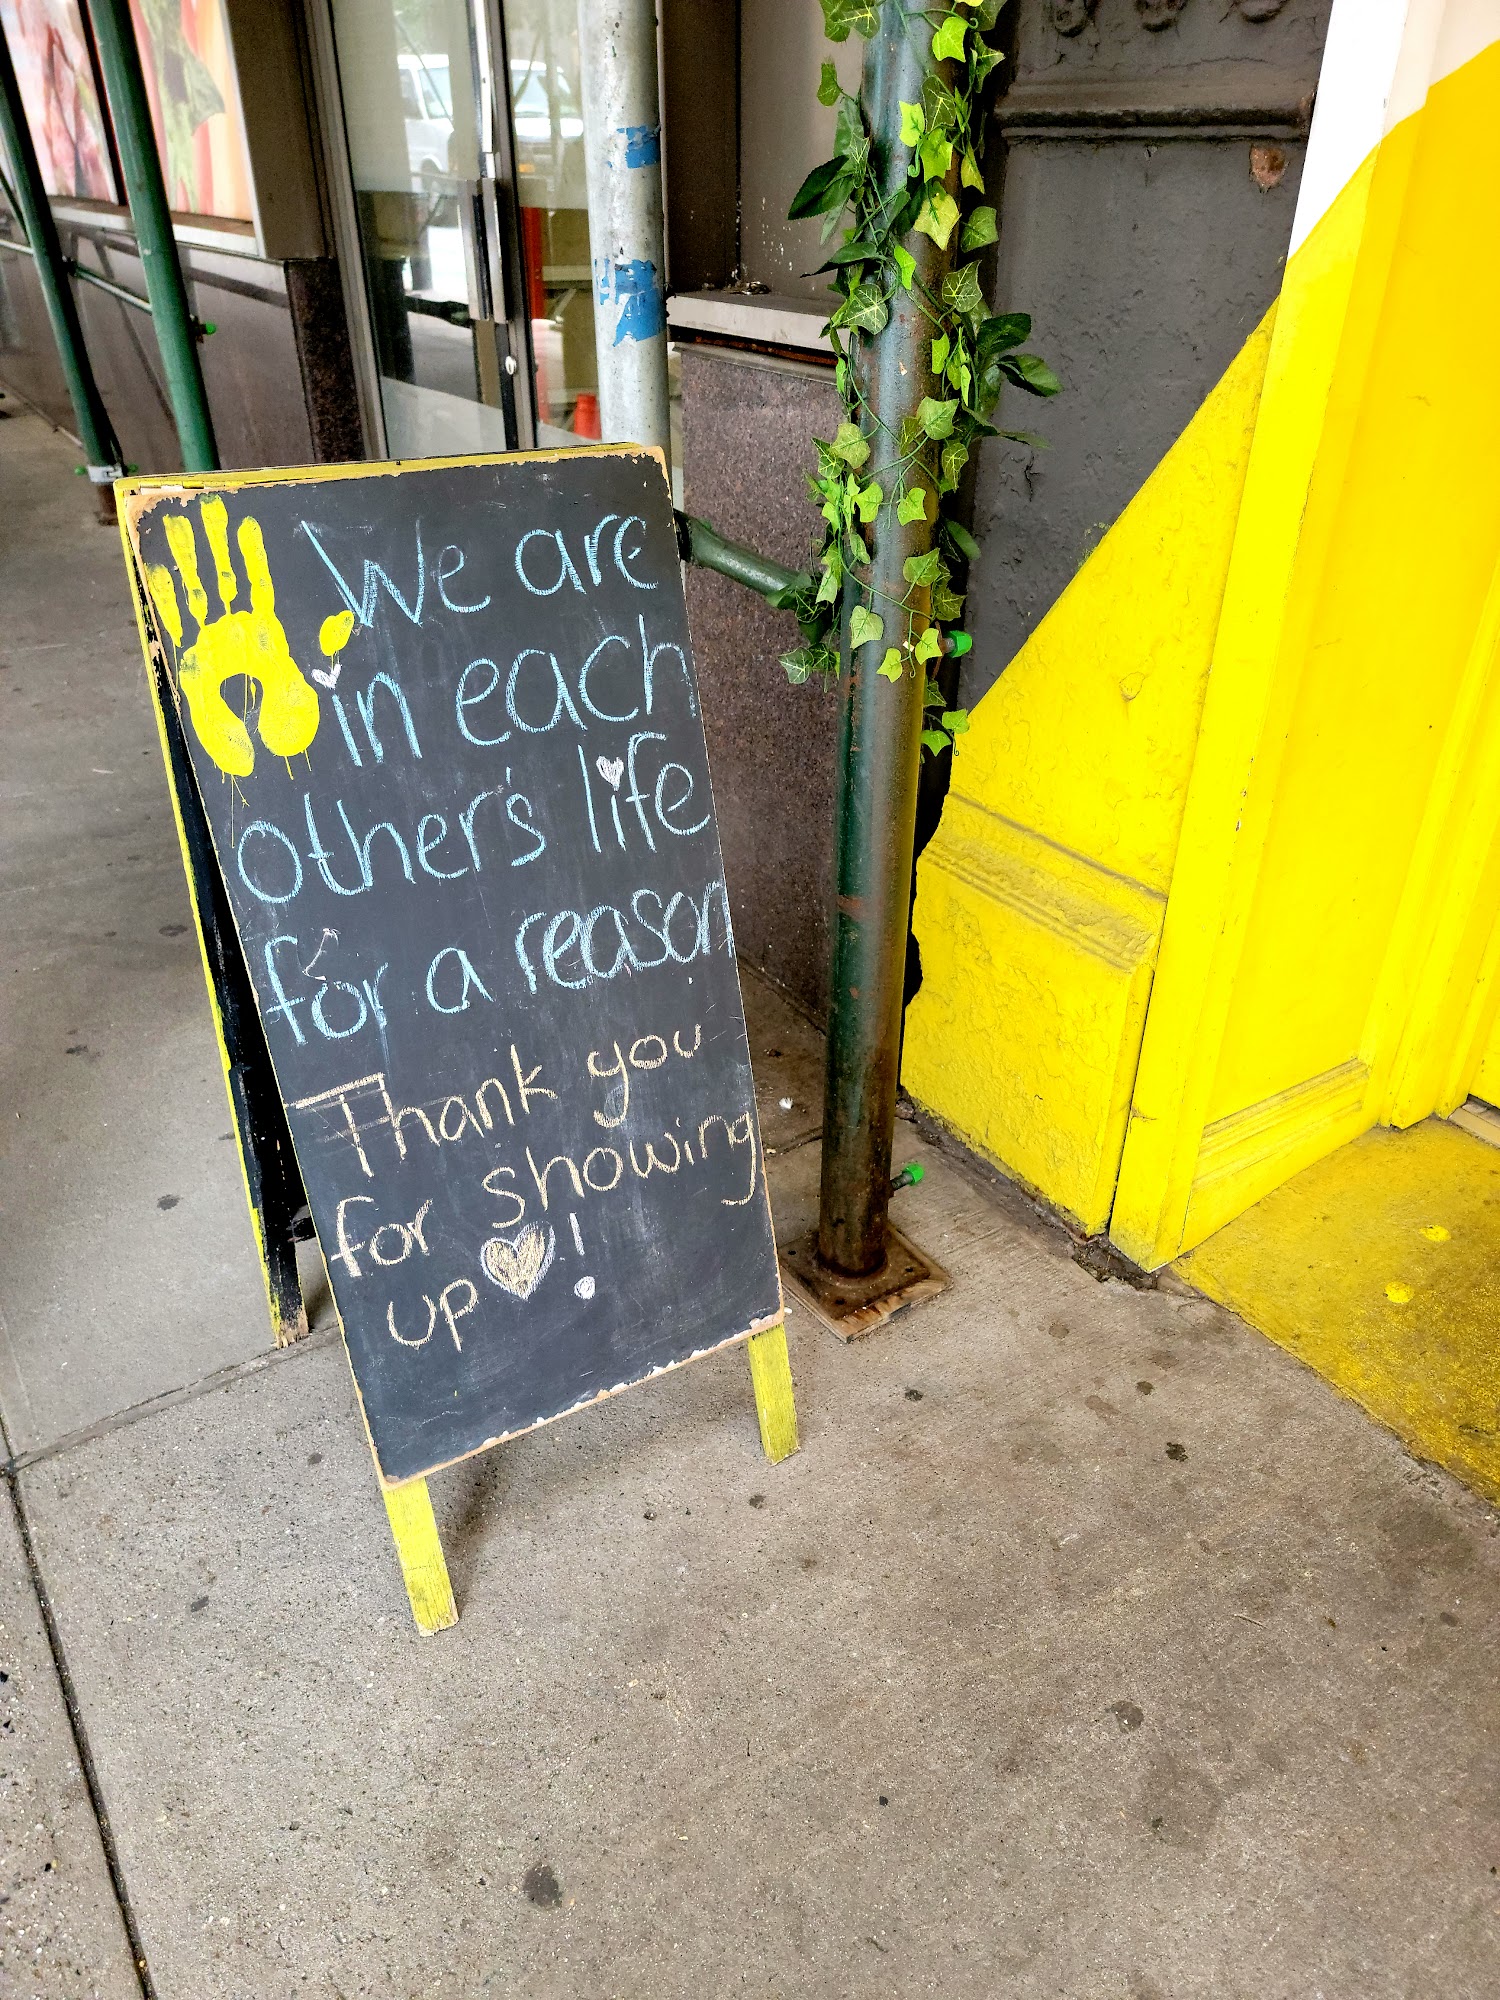 We are
in each
other's life
for a reason
Thank you
for showing
up !